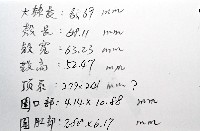 大棘長: 61.69 mm
殼長: 68.11 mm
殼寬: 63.23 mm
殼高: 52.67 mm
頂系: 27.9×26.1 mm ?
圍口部: 4.14×10.88 mm
圍肛部: 2.80×6.17 mm